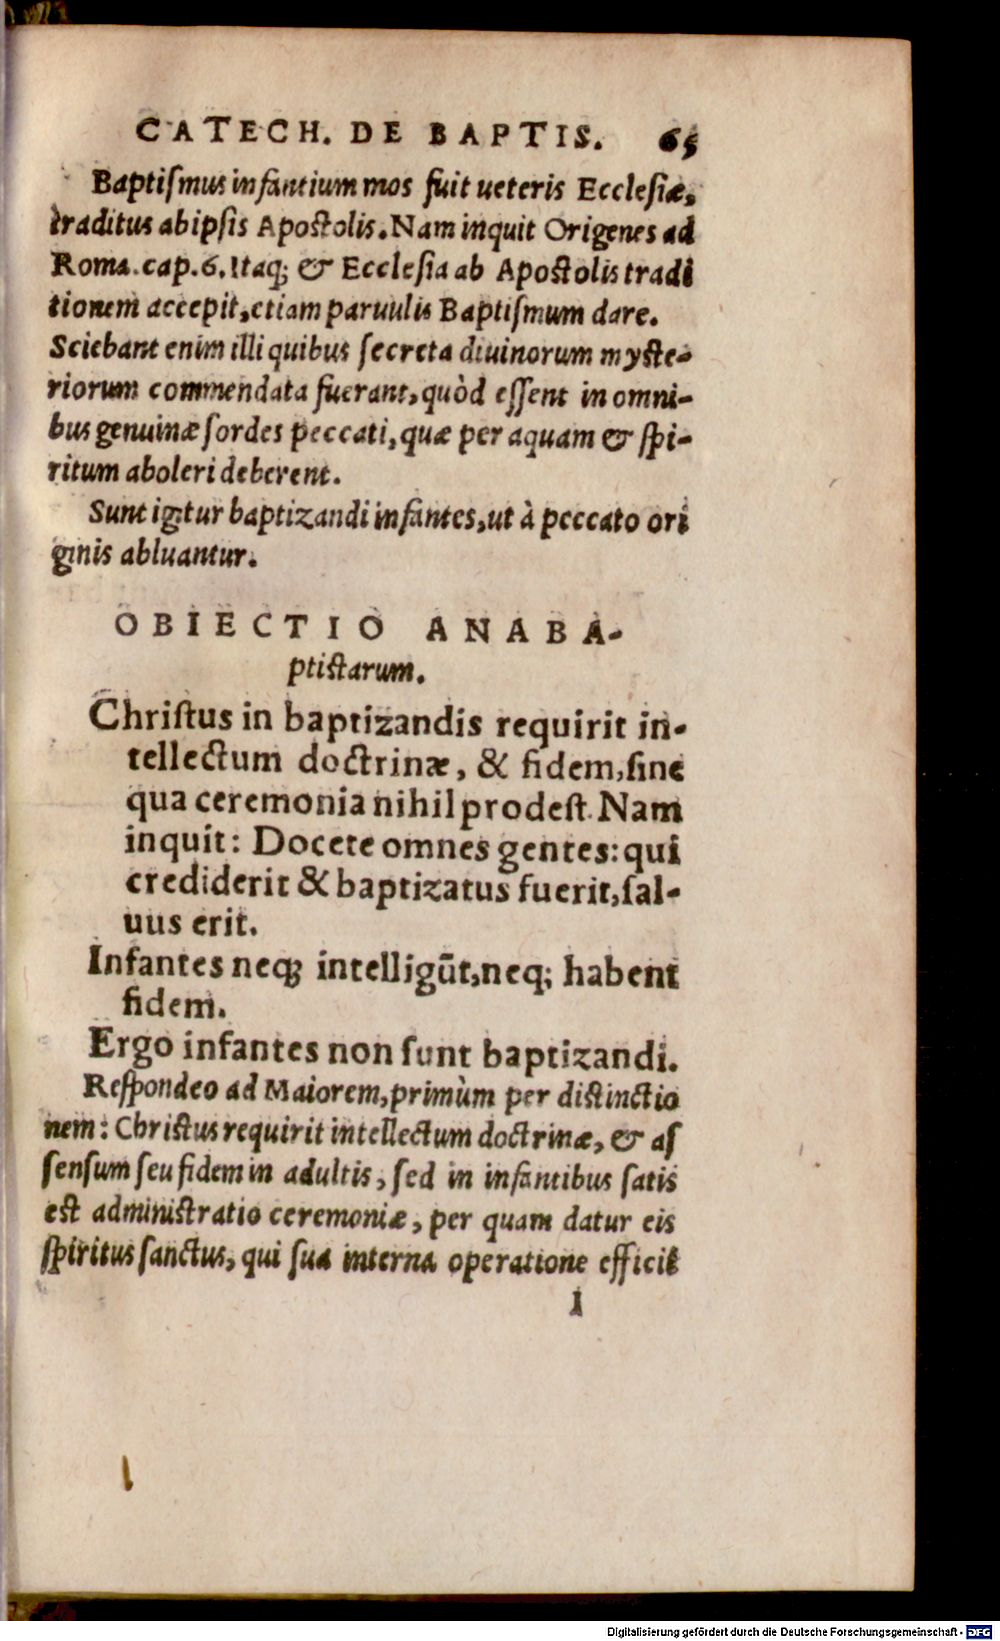 CATECH. DE BAPTIS. 65
Baptiſmus infantium mos fuit ueteris Eccleſiæ,
traditus ab ipſis Apoſtolis. Nam inquit Origenes ad
Roma. cap. 6. Itaq; & Eccleſia ab Apoſtolis tradi
tionem accepit, etiam paruulis Baptiſmum dare.
Sciebant enim illi quibus ſecreta diuinorum myſte-
riorum commendata fuerant, quòd eſſent in omni-
bus genuinæ ſordes peccati, quæ per aquam & ſpi-
ritum aboleri deberent.
Sunt igitur baptizandi infantes, ut à peccato ori
ginis abluantur.
OBIECTIO ANABA-
ptiſtarum.
Chriſtus in baptizandis requirit in-
tellectum doctrinæ, & fidem, ſine
qua ceremonia nihil prodeſt. Nam
inquit: Docete omnes gentes: qui
crediderit & baptizatus fuerit, ſal-
uus erit.
Infantes neq; intelligūt, neq; habent
fidem.
Ergo infantes non ſunt baptizandi.
Reſpondeo ad Maiorem, primùm per diſtinctio
nem: Chriſtus requirit intellectum doctrinæ, & aſ
ſenſum ſeu fidem in adultis, ſed in infantibus ſatis
eſt adminiſtratio ceremoniæ, per quam datur eis
ſpiritus ſanctus, qui ſua interna operatione efficit
I
Digitalisierung gefördert durch die Deutsche Forschungsgemeinschaft - DFG